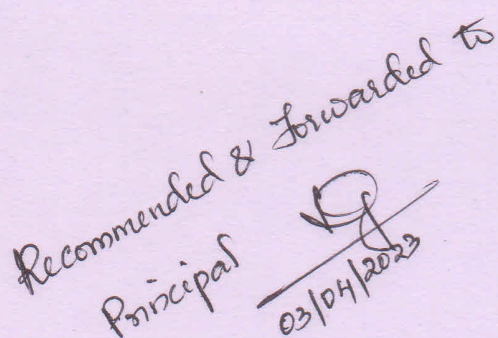 Recommended & Forwarded to
Principal
03/04/2023